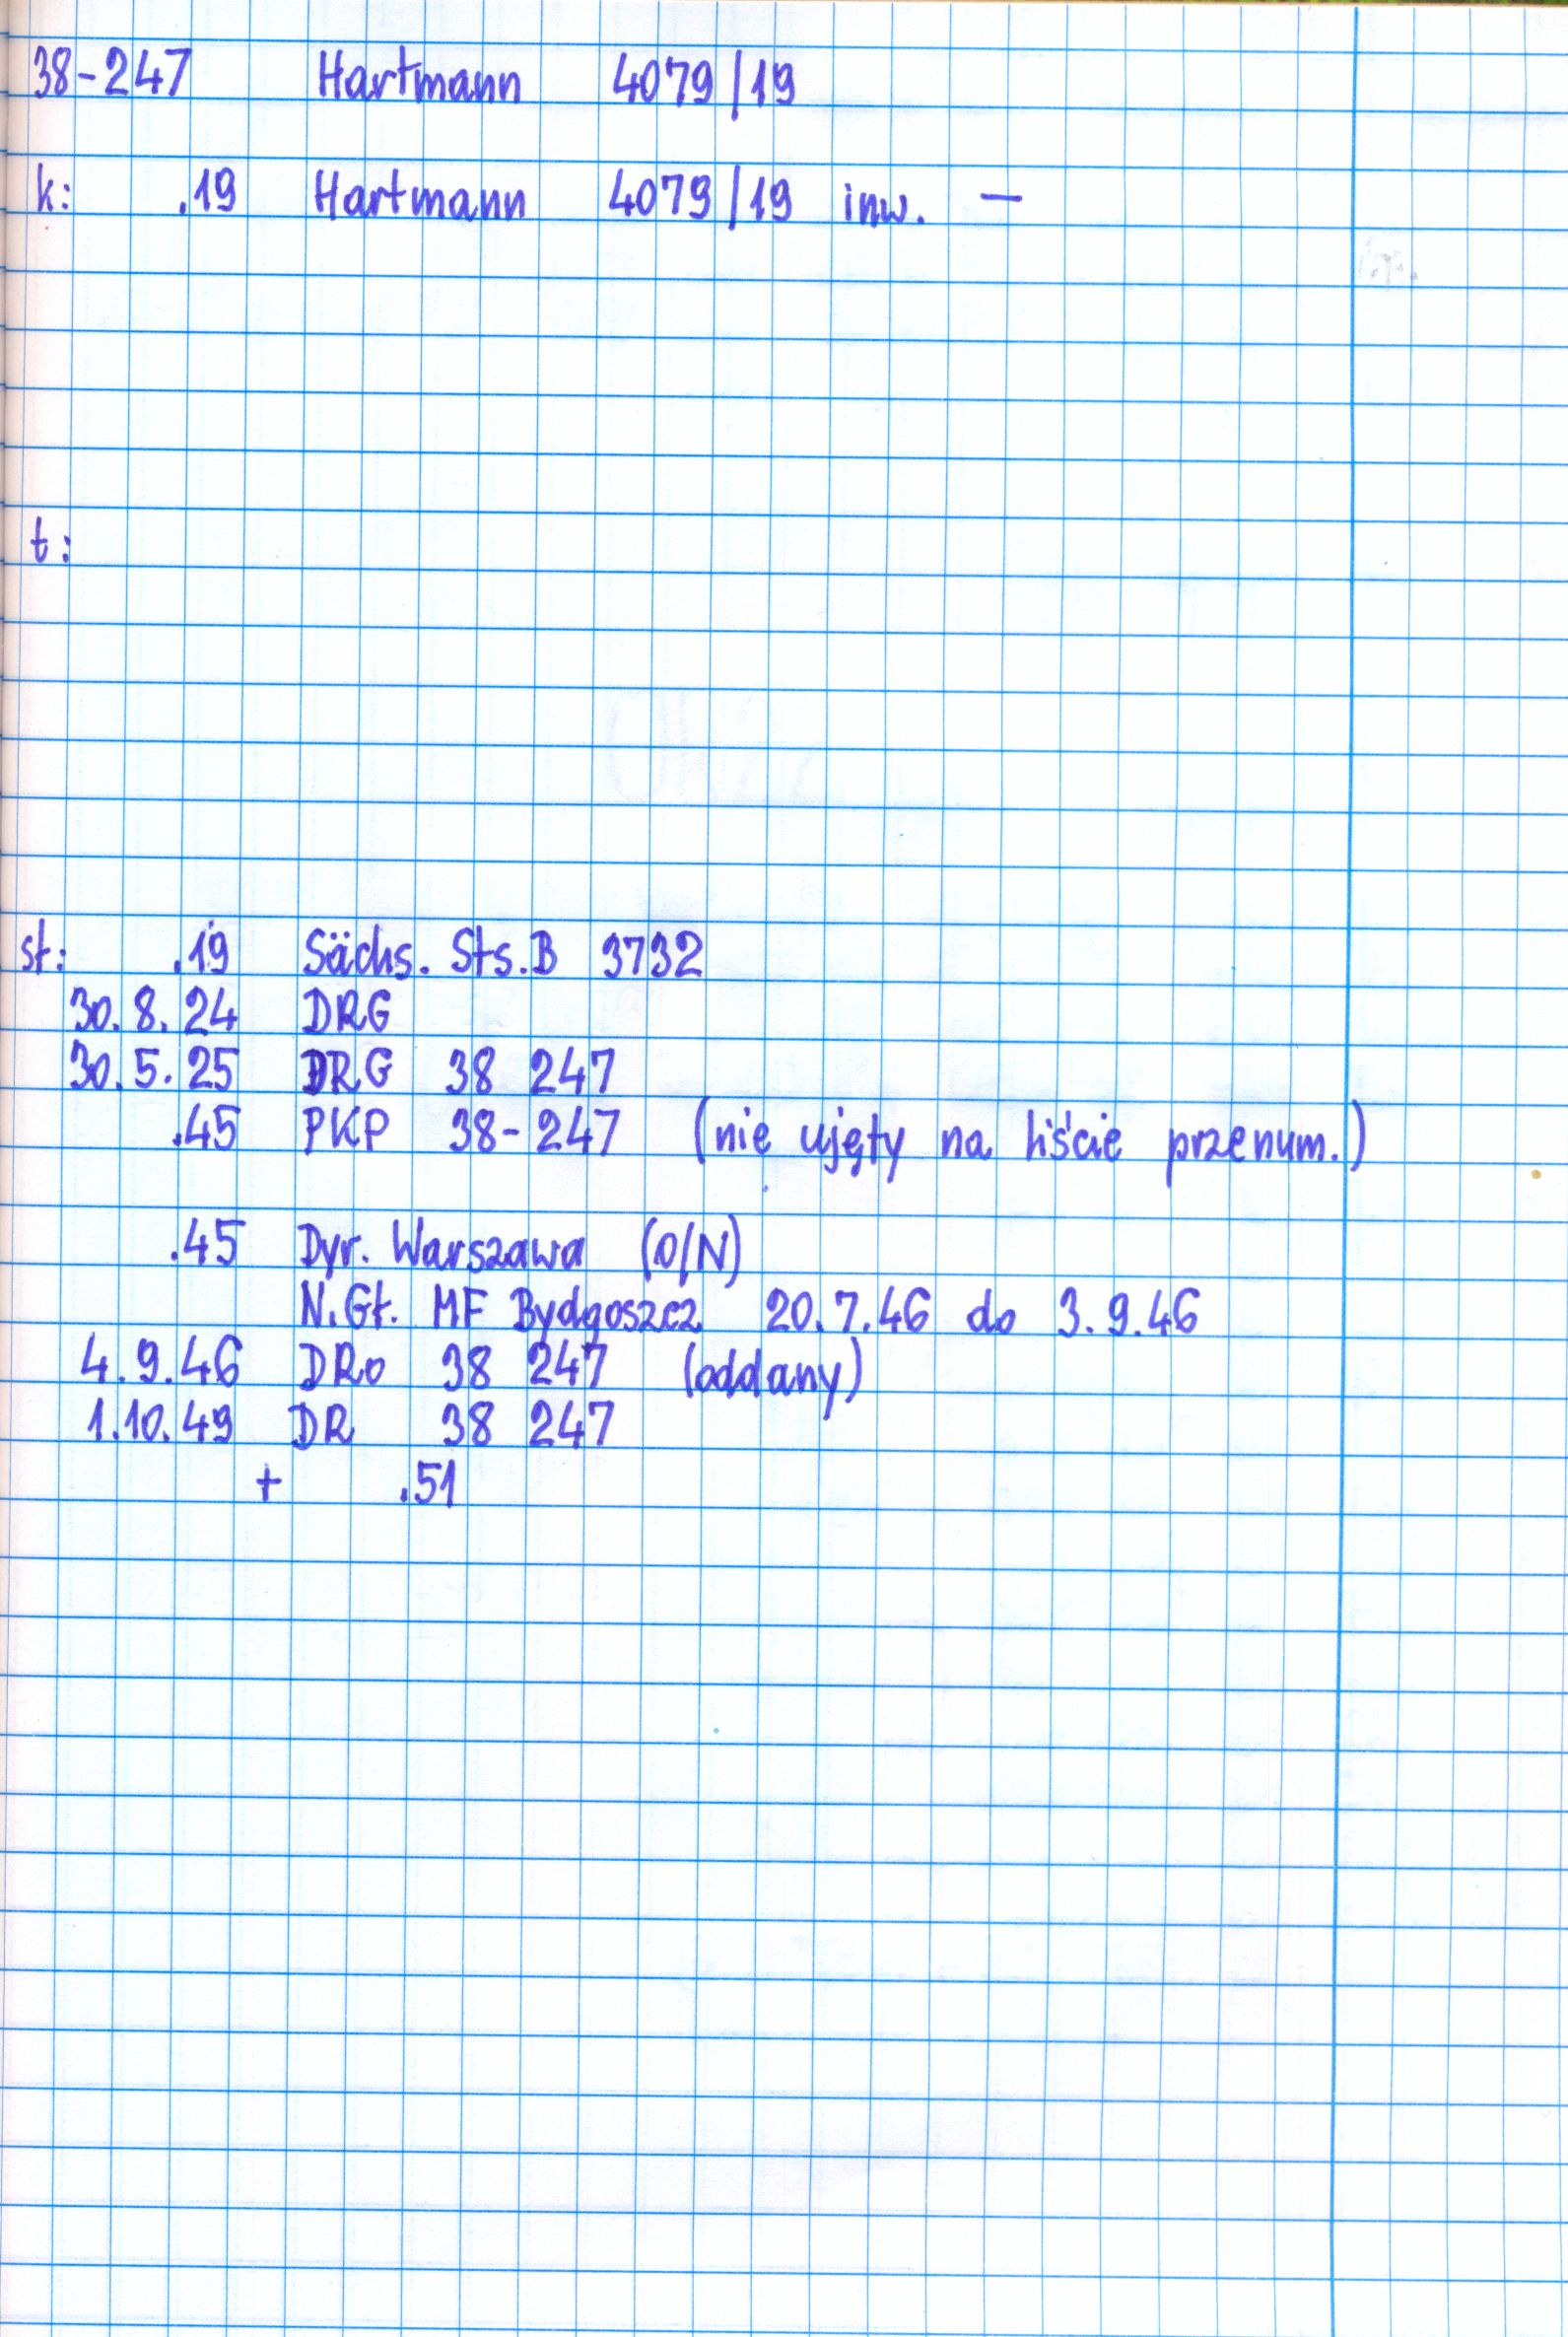 38-247 Hartmann 4079/19
k: .19 Hartmann 4079/19 inw. —
t:
st: .19 Sächs. Sts.B 3732
30.8.24 DRG
30.5.25 DRG 38 247
.45 PKP 38-247 (nie ujęty na liście przenum.)
.45 Dyr. Warszawa (O/N)
N.Gł. MF Bydgoszcz 20.7.46 do 3.9.46
4.9.46 DRo 38 247 (oddany)
1.10.49 DR 38 247
+ .51